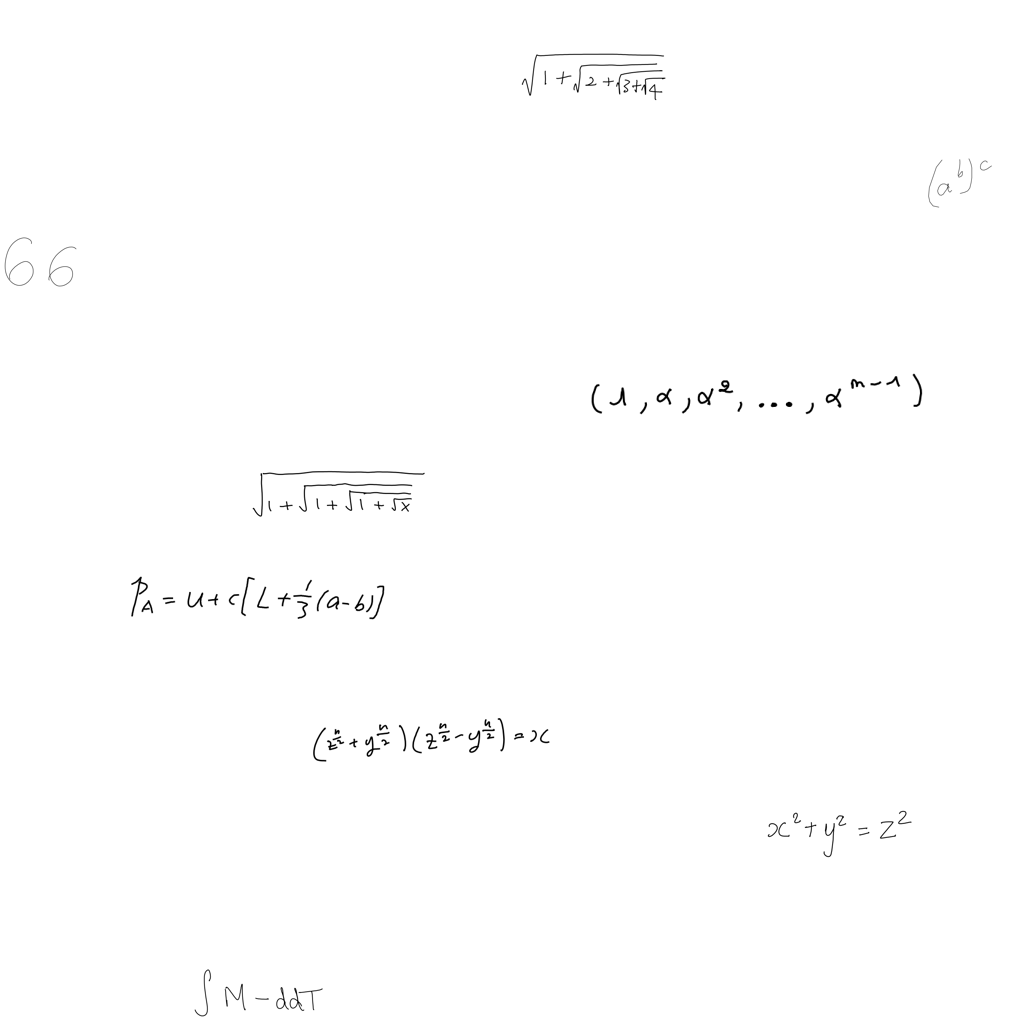 \sqrt{1+\sqrt{2+\sqrt{3+\sqrt{4}}}}
(a^b)^c
66
(1, α, α^2, ..., α^{m-1})
\sqrt{1+\sqrt{1+\sqrt{1+\sqrt{x}}}}
p_A = u + c[L + \frac{1}{3}(a-b)]
(z^{\frac{n}{2}} + y^{\frac{n}{2}})(z^{\frac{n}{2}} - y^{\frac{n}{2}}) = x
x^2 + y^2 = z^2
∫ M - ddT